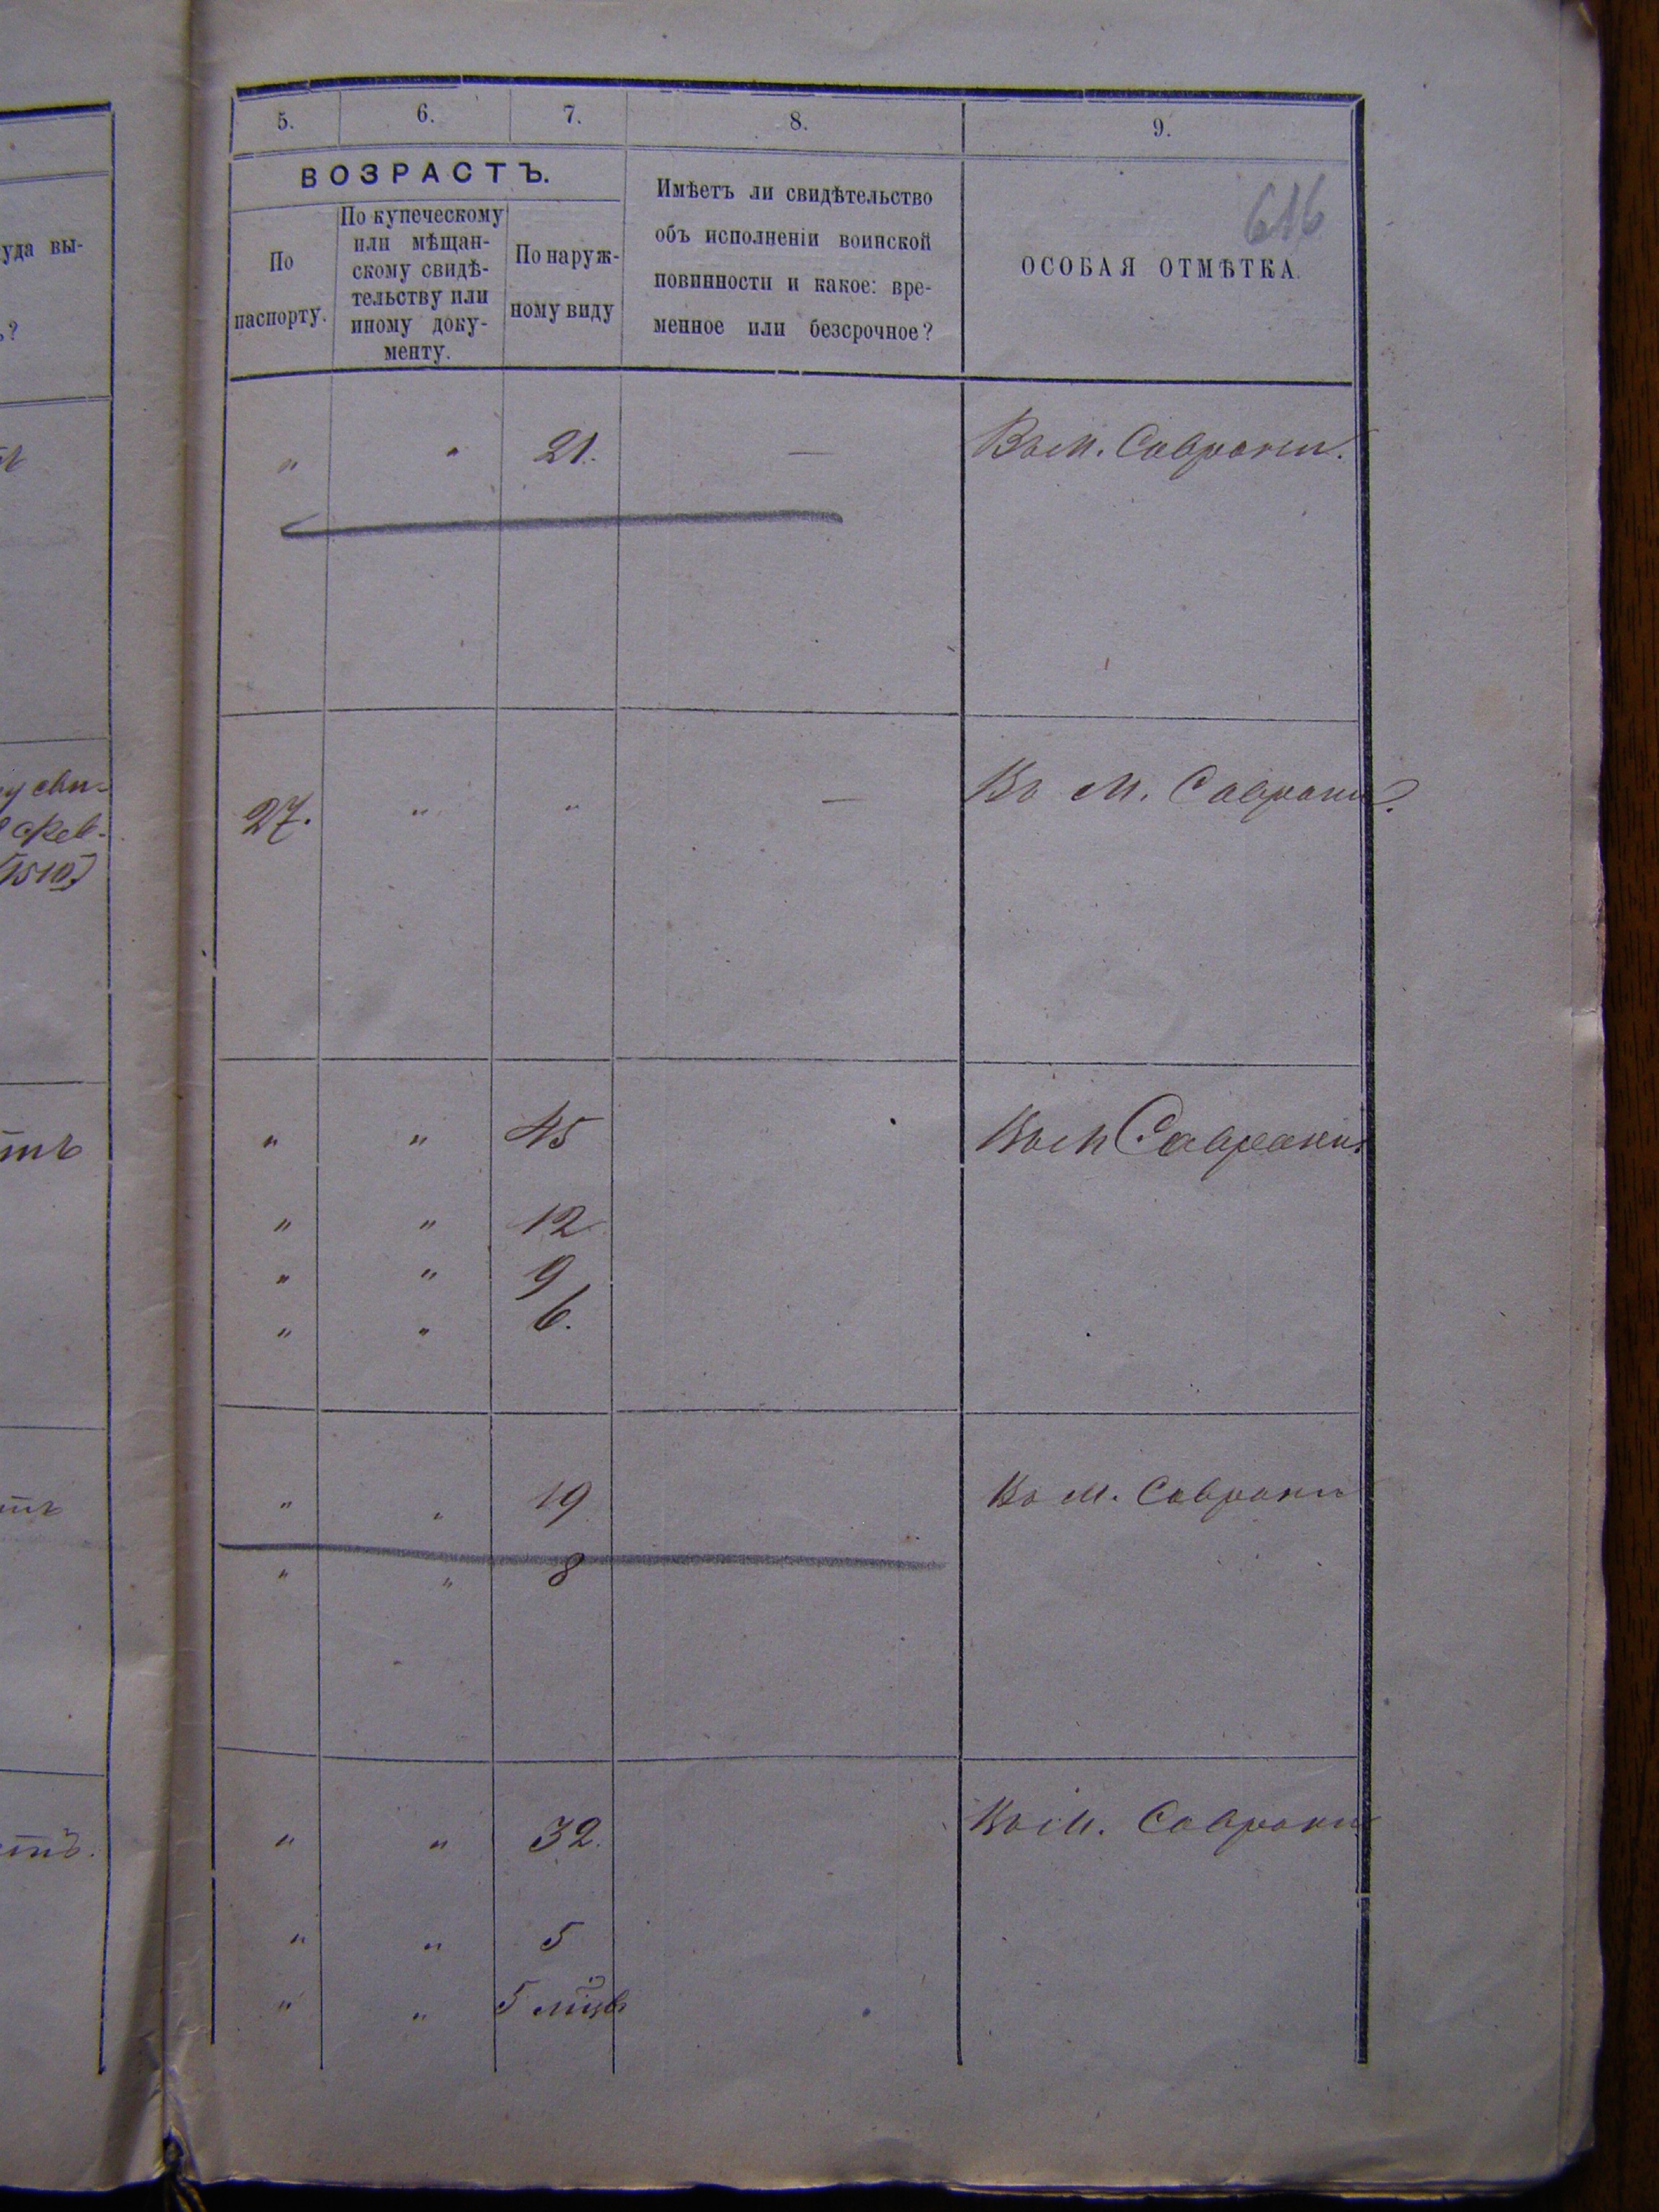 5. 6. 7. 8. 9.
ВОЗРАСТЪ.
По
паспорту.
По купеческому
или мѣщан-
скому свидѣ-
тельству или
иному доку-
менту.
По наруж-
ному виду
Имѣетъ ли свидѣтельство
объ исполненіи воинской
повинности и какое: вре-
менное или безсрочное?
ОСОБАЯ ОТМѢТКА.
616
уда вы-
ь?
" " 21. — Въ м. Саврани.
27. " " — Въ м. Саврани.
" " 45 Въ м Саврани.
" " 12
" " 9
" " 6.
" " 19 Въ м. Саврани
" " 8
" " 32. Въ м. Саврани
" " 5
" " 5 мцв